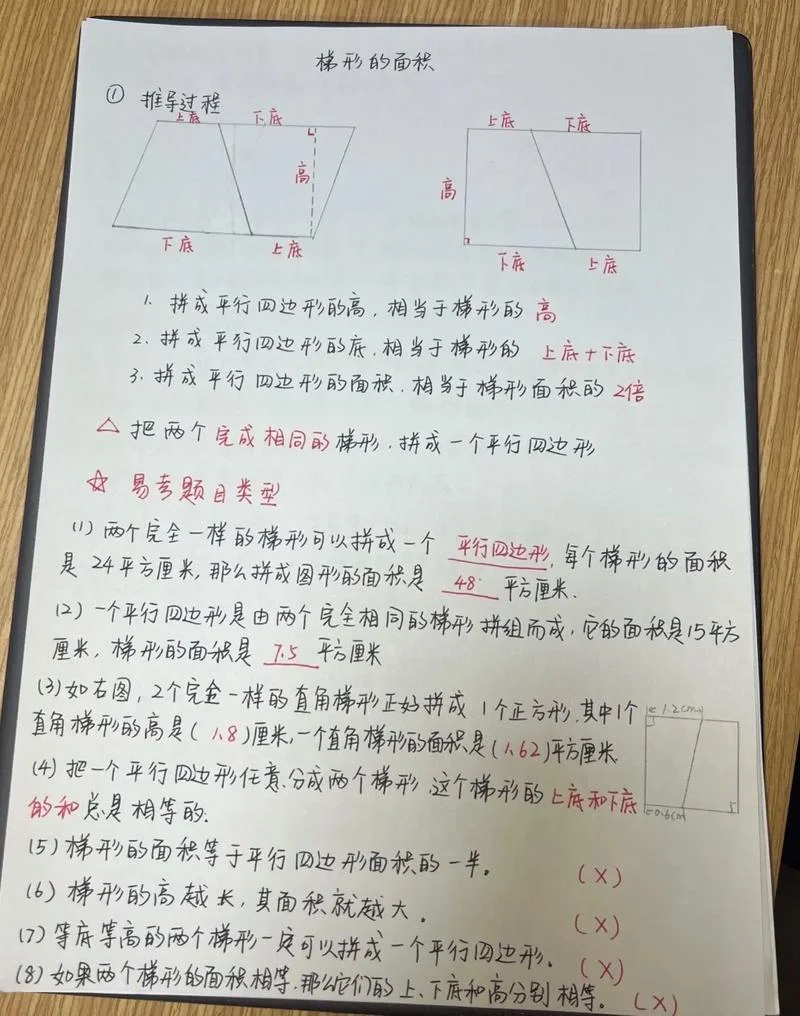 梯形的面积
① 推导过程
上底 下底
高
下底 上底
上底 下底
高
下底 上底
1. 拼成平行四边形的高，相当于梯形的 高
2. 拼成平行四边形的底，相当于梯形的 上底+下底
3. 拼成平行四边形的面积，相当于梯形面积的 2倍
△ 把两个完成相同的梯形，拼成一个平行四边形
☆ 易考题目类型
(1) 两个完全一样的梯形可以拼成一个 平行四边形，每个梯形的面积
是 24平方厘米，那么拼成图形的面积是 48 平方厘米．
(2) 一个平行四边形是由两个完全相同的梯形拼组而成，它的面积是15平方
厘米，梯形的面积是 7.5 平方厘米
(3) 如右图，2个完全一样的直角梯形正好拼成 1个正方形，其中1个
直角梯形的高是( 1.8 )厘米，一个直角梯形的面积是(1.62)平方厘米．
1.2cm
0.6cm
(4) 把一个平行四边形任意分成两个梯形，这个梯形的上底和下底
的和总是相等的．
(5) 梯形的面积等于平行四边形面积的一半。 (×)
(6) 梯形的高越长，其面积就越大。 (×)
(7) 等底等高的两个梯形一定可以拼成一个平行四边形。 (×)
(8) 如果两个梯形的面积相等，那么它们的上、下底和高分别相等。 (×)